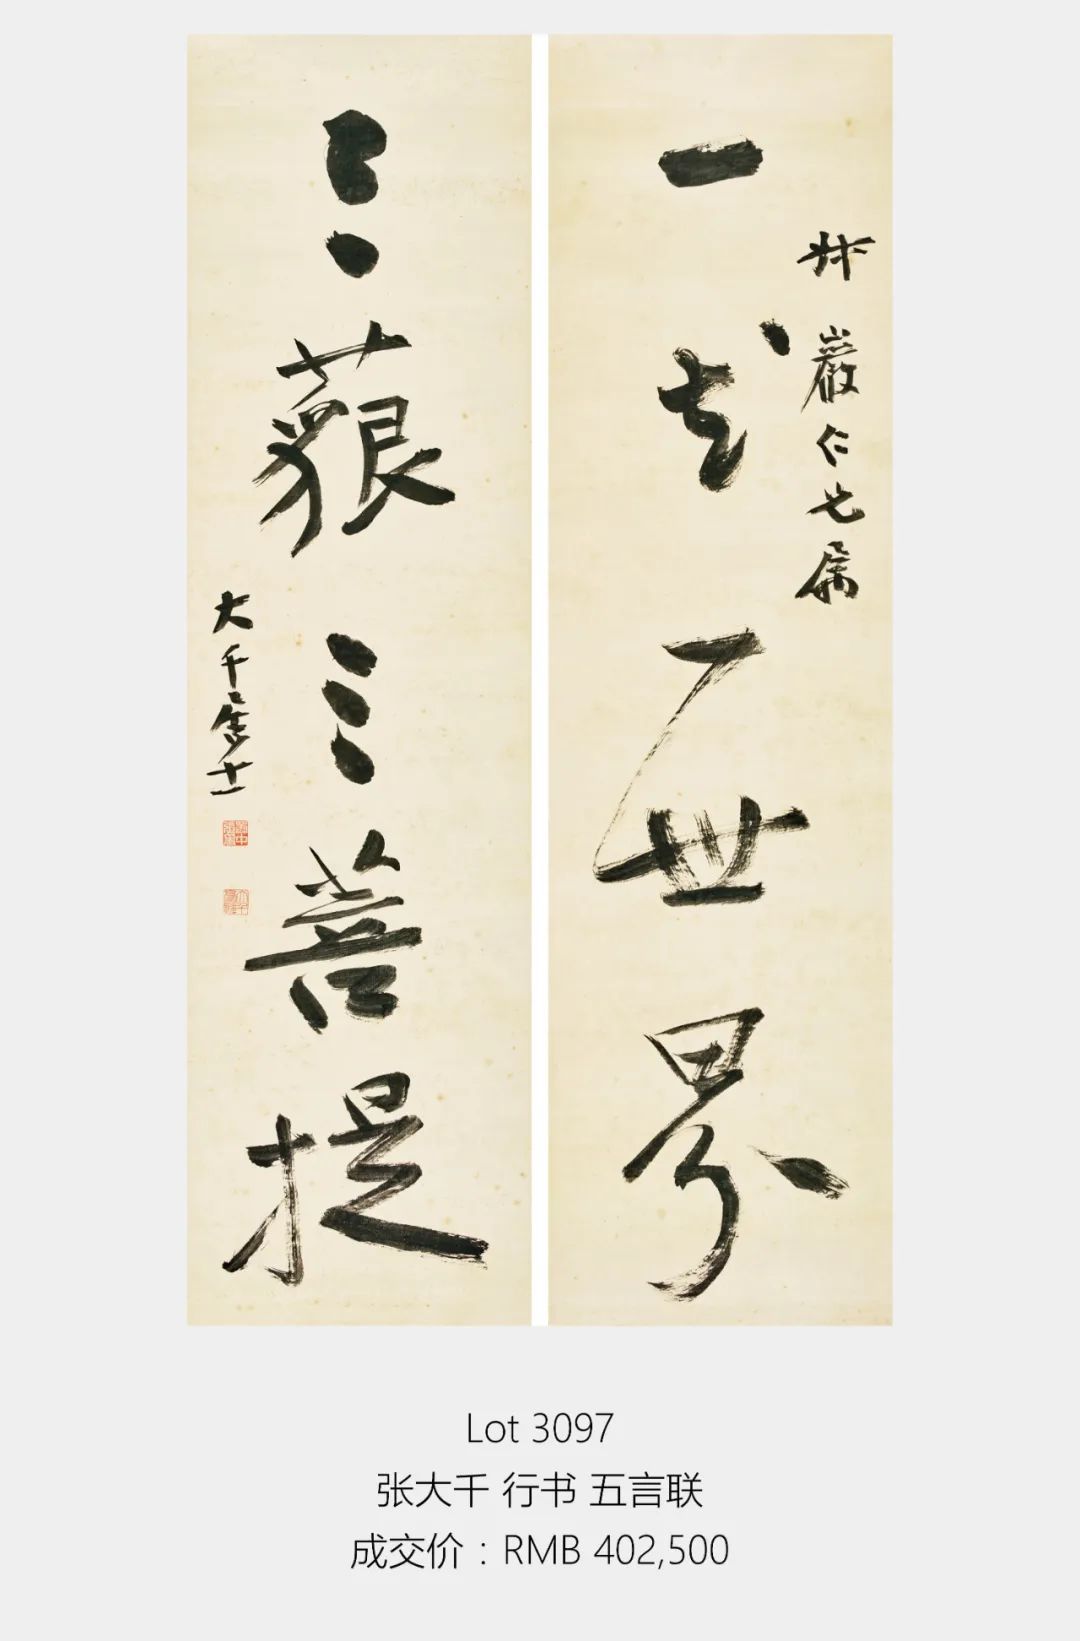 一一世界
巖仁兄属
三藐三菩提
大千居士
Lot 3097
张大千 行书 五言联
成交价：RMB 402,500